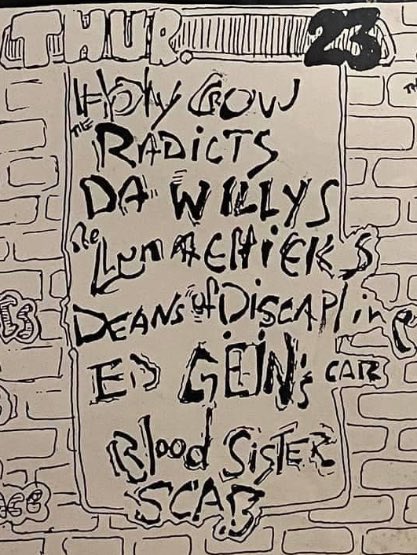 THUR. 23
HOLY CROW
THE RADICTS
DA WILLYS
THE LUNACHICKS
DEANS of DISCAPLINE
ED GEIN'S CAR
Blood SISTER
SCAB